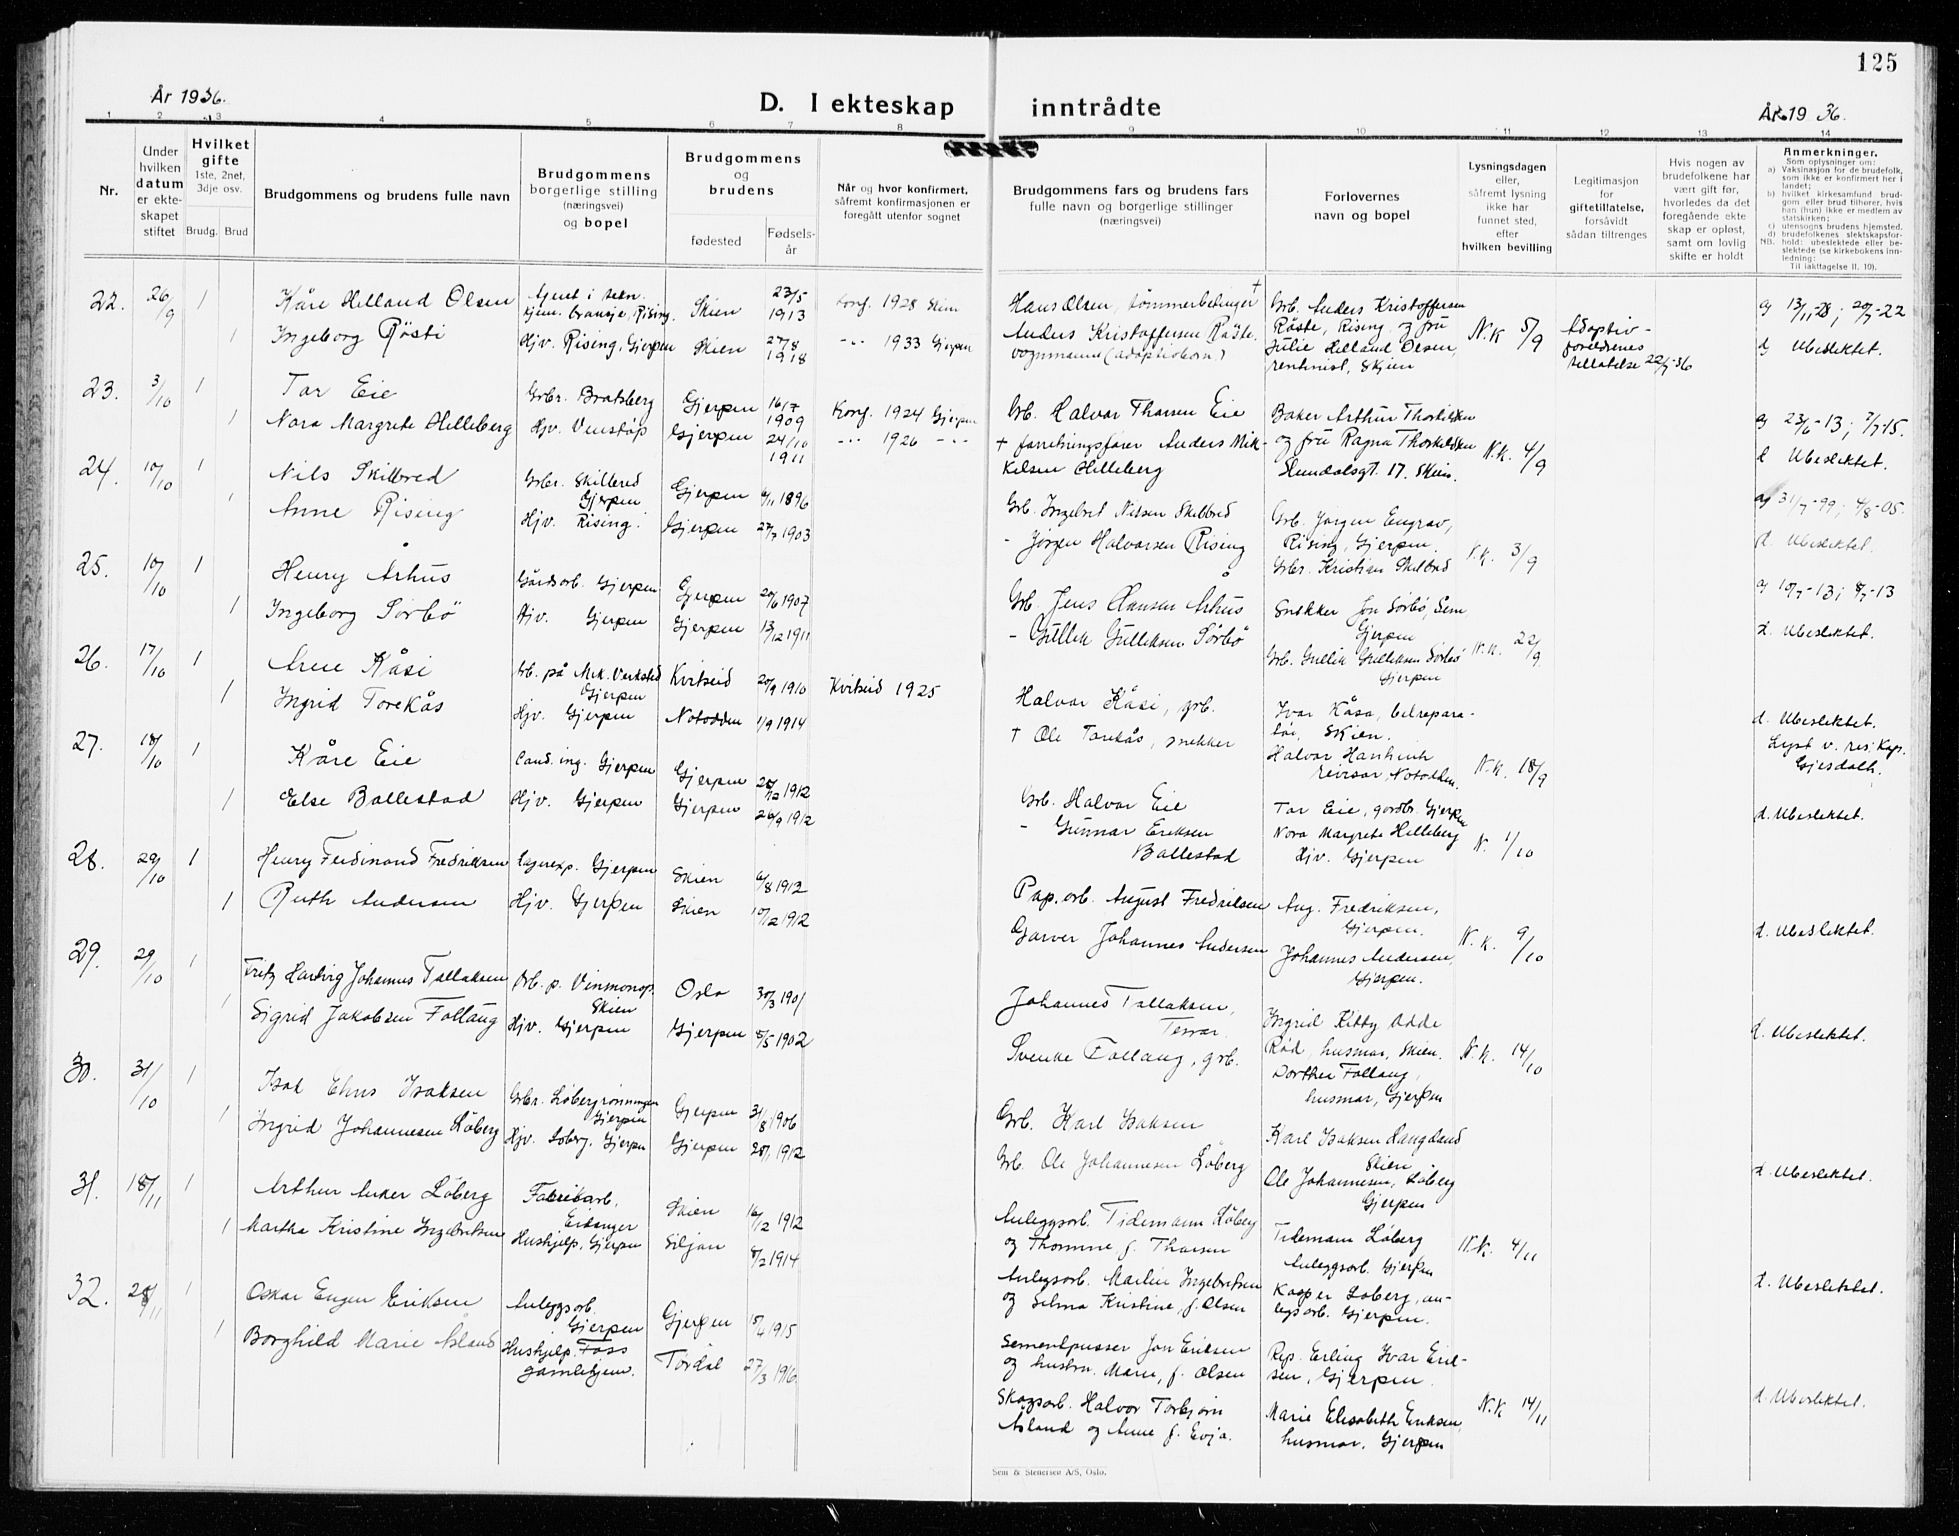 125
År 1936.
D. I ekteskap inntrådte
År 1936.
1 2 3 4 5 6 7 8 9 10 11 12 13 14
Nr.
Under hvilken datum er ekteskapet stiftet
Hvilket gifte
1ste, 2net, 3dje osv.
Brudg. Brud
Brudgommens og brudens fulle navn
Brudgommens borgerlige stilling (næringsvei) og bopel
Brudgommens og brudens
fødested
Fødselsår
Når og hvor konfirmert, såfremt konfirmasjonen er foregått utenfor sognet
Brudgommens fars og brudens fars fulle navn og borgerlige stillinger (næringsvei)
Forlovernes navn og bopel
Lysningsdagen eller, såfremt lysning ikke har funnet sted, efter hvilken bevilling
Legitimasjon for giftetillatelse, forsåvidt sådan tiltrenges
Hvis nogen av brudefolkene har vært gift før, hvorledes da det foregående ekteskap er opløst, samt om lovlig skifte er holdt
Anmerkninger.
Som oplysninger om:
a) Vaksinasjon for de brudefolk, som ikke er konfirmert her i landet;
b) hvilket kirkesamfund brudgom eller brud tilhører, hvis han (hun) ikke er medlem av statskirken;
c) utensogns brudens hjemsted.
d) brudefolkenes slektskapsforhold: ubeslektede eller beslektede (se kirkebokens innledning:
NB. Til iakttagelse II. 10).
22. 26/9 1 Kåre Helland Olsen
Rising, Skien 23/5 1913 Konf. 1928 Skien
Hans Olsen, tømmerbetinger †
Grb. Anders Kristoffersen Røste, Rising, og fru Julie Helland Olsen, rentenist, Skien
N.K 5/9
Adoptivforeldrenes tillatelse 22/9-36
a) 13/11-28; 20/7-22
1 Ingeborg Røsti
Hjv. Rising, Gjerpen Skien 27/8 1918 -"- 1933 Gjerpen
Anders Kristoffersen Røste. vognmann (adoptivbarn)
d) Ubeslektet.
23. 3/10 1 Tor Eie
Grbr. Bratsberg Gjerpen 16/7 1909 Konf. 1924 Gjerpen
Grb. Halvor Thorsen Eie
Baker Arthur Thorkildsen og fru Ragna Thorkildsen
17. Skien.
N.K. 4/9
a) 23/6-13; 7/7-15.
1 Nora Margrete Helleberg
Hjv. Venstøp Gjerpen 24/10 1911 -"- 1926 -"-
† forretningsfører Anders Mikkelsen Helleberg
d Ubeslektet.
24. 10/10 1 Nils Skilbred
Grbr. Skilbred Gjerpen Gjerpen 6/11 1896
Grb. Ingebret Nilsen Skilbred
Grb. Jørgen Engrav, Rising, Gjerpen.
Grbr. Kristian Skilbred
N.K. 3/9
a) 31/7-99; 4/8-05.
1 Anne Rising
Hjv. Rising. Gjerpen 27/7 1903
- Jørgen Halvorsen Rising
d. Ubeslektet.
25. 10/10 1 Henry Århus
Gårdsarb. Gjerpen Gjerpen 20/6 1907
Grb. Jens Hansen Århus
Snekker Jon Sørbø, Sem Gjerpen
Grb. Gullik Gulliksen Sørbø Gjerpen
N.K. 22/9
a) 10/7-13; 8/7-13
1 Ingeborg Sørbö
Hjv. Gjerpen Gjerpen 13/12 1911
- Gullik Gulliksen Sörbö
d. Ubeslektet.
26. 17/10 1 Arne Kåsi
Arb. på Mek. Verksted Gjerpen Kviteseid 20/9 1910 Kviteseid 1925
Halvor Kåsi, grb.
Ivar Kåsa, bilreparatör, Skien.
Halvor
revisor, Notodden.
N.K. 18/9
d. Ubeslektet.
Lyst v. res. Kap. Gjesdalh.
1 Ingrid Torekås
Hjv. Gjerpen Notodden 1/9 1914
† Ole Torekås, snekker
27. 18/10 1 Kåre Eie
Cand. ing. Gjerpen Gjerpen 20/12 1912
Grb. Halvor Eie
Tor Eie, gardbr. Gjerpen
Nora Margrete Helleberg Hjv. Gjerpen
N. 1/10
d. Ubeslektet.
1 Else Ballestad
Hjv. Gjerpen Gjerpen 26/9 1912
- Gunnar Eriksen Ballestad
28. 29/10 1 Henry Ferdinand Fredriksen
Lagerexp. Gjerpen Skien 6/8 1912
Pap. arb. August Fredriksen
Aug. Fredriksen, Gjerpen.
Johannes Andersen, Gjerpen.
N.K. 9/10
d. Ubeslektet.
1 Ruth Andersen
Hjv. Gjerpen Skien 10/12 1912
Garver Johannes Andersen
29. 29/10 1 Fritz Hartvig Johannes Tallaksen
Arb. p. Vinmonop. Skien Oslo 30/3 1901
Johannes Tallaksen,
Ingrid Kitty Odde Rød, husmor, Skien.
Dorthea Follaug, husmor, Gjerpen
N.K. 14/10
d. Ubeslektet.
1 Sigrid Jakobsen Follaug
Hjv. Gjerpen Gjerpen 8/5 1902
Svenke Follaug, grb.
30. 31/10 1 Isak Isaksen
Grbr. Löbergrönningen Gjerpen Gjerpen 31/8 1906
Grb. Karl Isaksen
Karl Isaksen Langeland Skien
Ole Johannesen, Löberg Gjerpen
d. Ubeslektet.
1 Ingrid Johannesen Löberg
Hjv. Löberg, Gjerpen Gjerpen 20/1 1912
Grb. Ole Johannesen Löberg
31. 18/11 1 Arthur Anker Löberg
Fabrikarb. Eidanger Skien 16/12 1912
Anleggsarb. Tidemann Löberg og Thomine f. Thorsen
Tidemann Löberg Anleggsarb. Gjerpen
Kasper Löberg, anlegsarb. Gjerpen.
N.K. 4/11
d. Ubeslektet.
1 Martha Kristine Ingebretsen
Hushjelp, Gjerpen Siljan 8/2 1914
Anlegsarb. Martin Ingebretsen og Selma Kristine, f. Olsen
32. 28/11 1 Oskar Eugen Eriksen
Anleggsarb. Gjerpen Gjerpen 15/4 1915
Sementpusser Jon Eriksen og hustru Marie, f. Olsen
Rep. Erling Ivar Eriksen, Gjerpen.
Marie Elisabeth Eriksen, husmor, Gjerpen
N.K 14/11
d. Ubeslektet.
1 Borghild Marie Åsland
Hushjelp. Foss gamlehjem. Tørdal 27/3 1916
Skogsarb. Halvor Torbjørn Åsland og Anne f. Evja.
Sem & Stenersen A/S, Oslo.